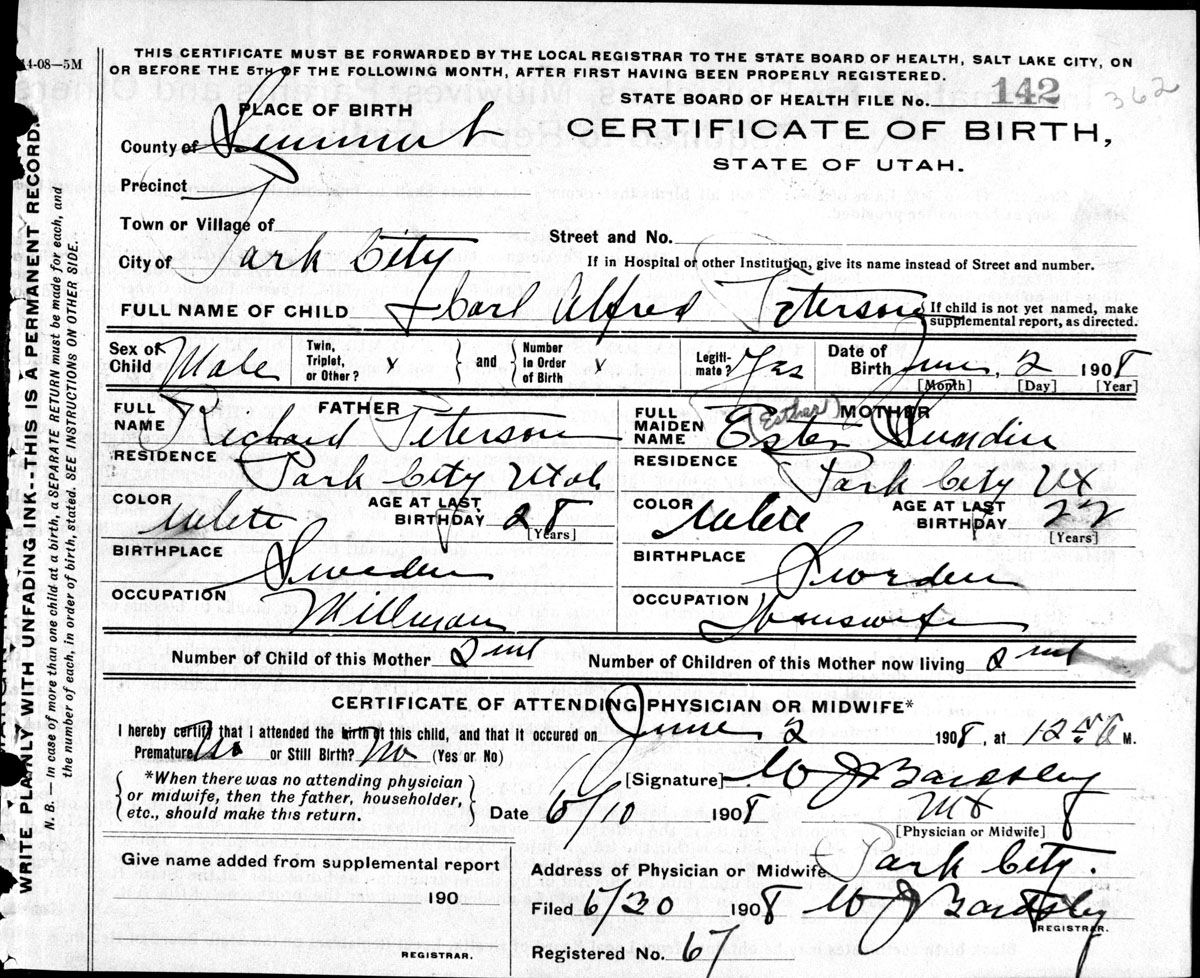 14-08—5M
THIS CERTIFICATE MUST BE FORWARDED BY THE LOCAL REGISTRAR TO THE STATE BOARD OF HEALTH, SALT LAKE CITY, ON
OR BEFORE THE 5TH OF THE FOLLOWING MONTH, AFTER FIRST HAVING BEEN PROPERLY REGISTERED.
STATE BOARD OF HEALTH FILE No. 142 362
PLACE OF BIRTH
CERTIFICATE OF BIRTH,
STATE OF UTAH.
County of Summit
Precinct
Town or Village of
Street and No.
City of Park City
If in Hospital or other Institution, give its name instead of Street and number.
FULL NAME OF CHILD Carl Alfred Peterson
If child is not yet named, make
supplemental report, as directed.
Sex of Child Male
Twin, Triplet, or Other? x
and
Number in Order of Birth x
Legiti-mate? Yes
Date of Birth June, 2 1908
[Month] [Day] [Year]
FATHER
FULL NAME Richard Peterson
RESIDENCE Park City Utah
COLOR White
AGE AT LAST BIRTHDAY 28
[Years]
BIRTHPLACE Sweden
OCCUPATION Millman
MOTHER
(Esther)
FULL MAIDEN NAME Ester Sundin
RESIDENCE Park City Ut
COLOR White
AGE AT LAST BIRTHDAY 22
[Years]
BIRTHPLACE Sweden
OCCUPATION Housewife
Number of Child of this Mother 2nd
Number of Children of this Mother now living 2nd
CERTIFICATE OF ATTENDING PHYSICIAN OR MIDWIFE*
I hereby certify that I attended the birth of this child, and that it occured on June 2 1908, at 12 M.
Premature No or Still Birth? No (Yes or No)
*When there was no attending physician
or midwife, then the father, householder,
etc., should make this return.
[Signature] W J Bardsley
Date 6/10 1908
[Physician or Midwife]
Give name added from supplemental report
190
REGISTRAR.
Address of Physician or Midwife Park City.
Filed 6/30 1908 W J Bardsley
REGISTRAR.
Registered No. 67
WRITE PLAINLY WITH UNFADING INK--THIS IS A PERMANENT RECORD.
N. B.— In case of more than one child at a birth, a SEPARATE RETURN must be made for each, and
the number of each, in order of birth, stated. SEE INSTRUCTIONS ON OTHER SIDE.